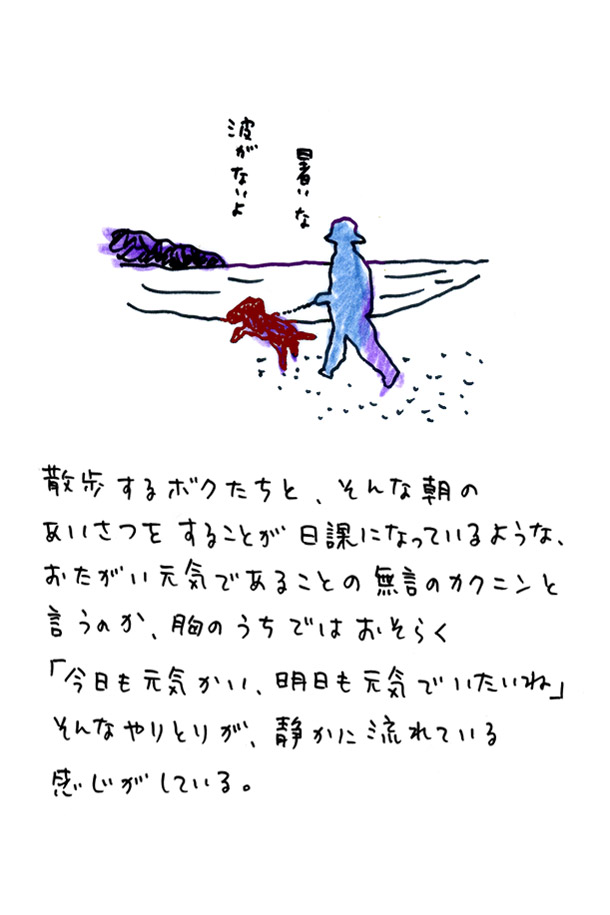 暑いな
波がないよ
散歩するボクたちと、そんな朝の
あいさつをすることが日課になっているような、
おたがい元気であることの無言のカクニンと
言うのか、胸のうちではおそらく
「今日も元気かい、明日も元気でいたいね」
そんなやりとりが、静かに流れている
感じがしている。